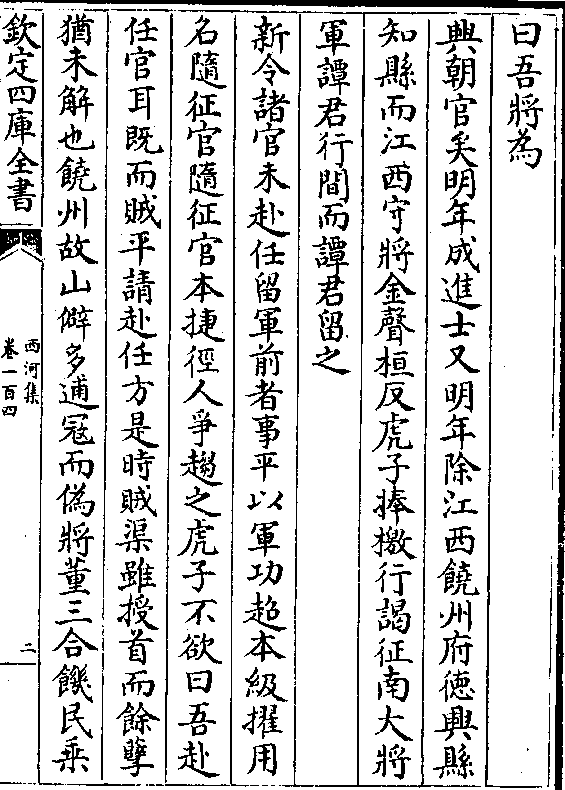 曰吾將為
興朝官矣明年成進士又明年除江西饒州府徳興縣
知縣而江西守將金聲桓反虎子捧檄行謁征南大將
軍譚君行間而譚君留之
新令諸官未赴任留軍前者事平以軍功超本級擢用
名隨征官隨征官本捷徑人爭趨之虎子不欲曰吾赴
任官耳既而賊平請赴任方是時賊渠雖授首而餘孽
猶未解也饒州故山僻多逋冦而偽將董三合饑民乗
欽定四庫全書
西河集
卷一百四
二